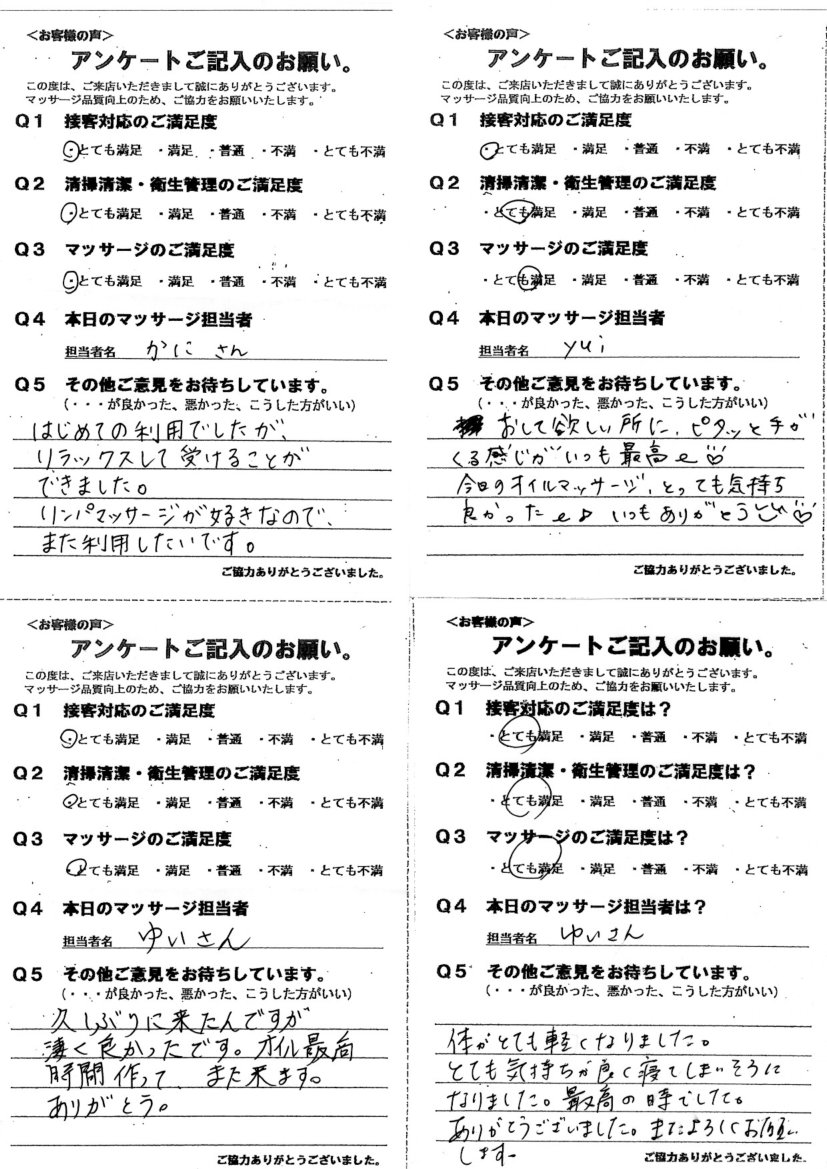 ＜お客様の声＞
アンケートご記入のお願い。
この度は、ご来店いただきまして誠にありがとうございます。
マッサージ品質向上のため、ご協力をお願いいたします。
Q1 接客対応のご満足度
・とても満足 ・満足 ・普通 ・不満 ・とても不満
Q2 清掃清潔・衛生管理のご満足度
・とても満足 ・満足 ・普通 ・不満 ・とても不満
Q3 マッサージのご満足度
・とても満足 ・満足 ・普通 ・不満 ・とても不満
Q4 本日のマッサージ担当者
担当者名 かに さん
Q5 その他ご意見をお待ちしています。
（・・・が良かった、悪かった、こうした方がいい）
はじめての利用でしたが、
リラックスして受けることが
できました。
リンパマッサージが好きなので、
また利用したいです。
ご協力ありがとうございました。
＜お客様の声＞
アンケートご記入のお願い。
この度は、ご来店いただきまして誠にありがとうございます。
マッサージ品質向上のため、ご協力をお願いいたします。
Q1 接客対応のご満足度
・とても満足 ・満足 ・普通 ・不満 ・とても不満
Q2 清掃清潔・衛生管理のご満足度
・とても満足 ・満足 ・普通 ・不満 ・とても不満
Q3 マッサージのご満足度
・とても満足 ・満足 ・普通 ・不満 ・とても不満
Q4 本日のマッサージ担当者
担当者名 yui
Q5 その他ご意見をお待ちしています。
（・・・が良かった、悪かった、こうした方がいい）
おして欲しい所に、ピタッと手が
くる感じがいつも最高
今日のオイルマッサージ、とっても気持ち
良かった♪ いつもありがとう
ご協力ありがとうございました。
＜お客様の声＞
アンケートご記入のお願い。
この度は、ご来店いただきまして誠にありがとうございます。
マッサージ品質向上のため、ご協力をお願いいたします。
Q1 接客対応のご満足度
・とても満足 ・満足 ・普通 ・不満 ・とても不満
Q2 清掃清潔・衛生管理のご満足度
・とても満足 ・満足 ・普通 ・不満 ・とても不満
Q3 マッサージのご満足度
・とても満足 ・満足 ・普通 ・不満 ・とても不満
Q4 本日のマッサージ担当者
担当者名 ゆいさん
Q5 その他ご意見をお待ちしています。
（・・・が良かった、悪かった、こうした方がいい）
久しぶりに来たんですが
凄く良かったです。オイル最高
時間作って、また来ます。
ありがとう。
ご協力ありがとうございました。
＜お客様の声＞
アンケートご記入のお願い。
この度は、ご来店いただきまして誠にありがとうございます。
マッサージ品質向上のため、ご協力をお願いいたします。
Q1 接客対応のご満足度は？
・とても満足 ・満足 ・普通 ・不満 ・とても不満
Q2 清掃清潔・衛生管理のご満足度は？
・とても満足 ・満足 ・普通 ・不満 ・とても不満
Q3 マッサージのご満足度は？
・とても満足 ・満足 ・普通 ・不満 ・とても不満
Q4 本日のマッサージ担当者は？
担当者名 ゆいさん
Q5 その他ご意見をお待ちしています。
（・・・が良かった、悪かった、こうした方がいい）
体がとても軽くなりました。
とても気持ちが良く寝てしまいそうに
なりました。最高の時でした。
ありがとうございました。またよろしくお願い
します
ご協力ありがとうございました。